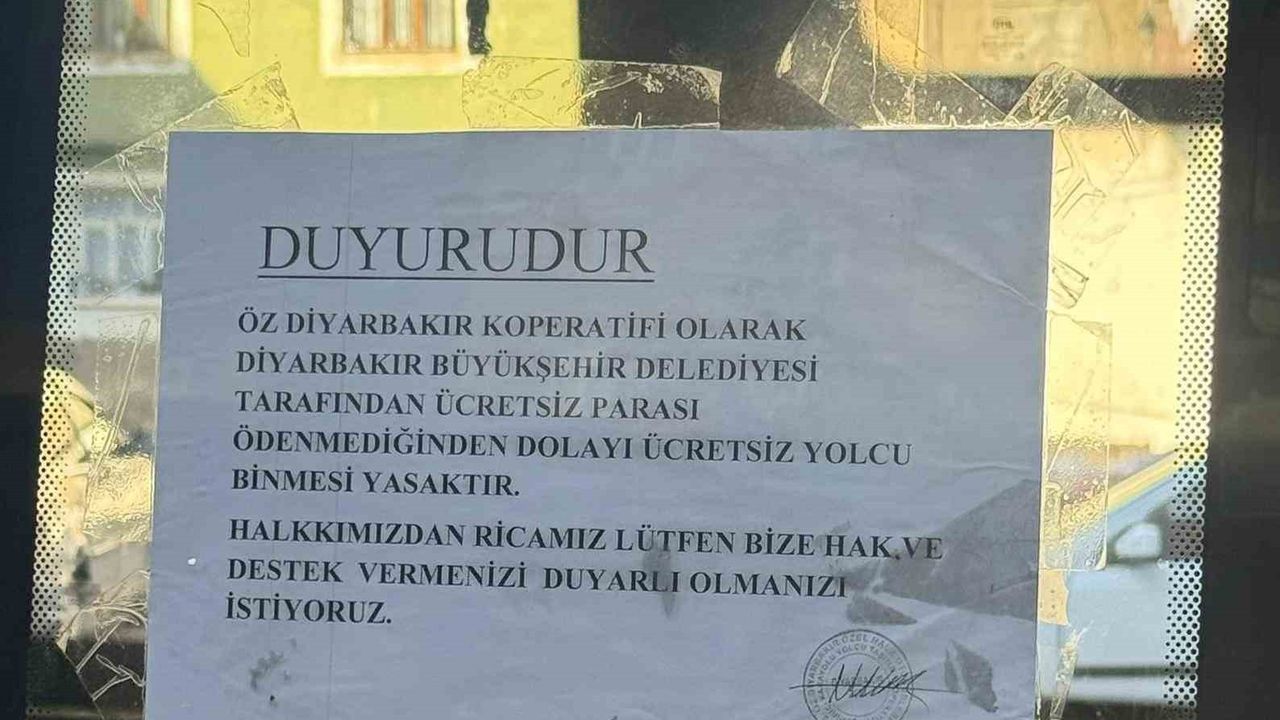 DUYURUDUR
ÖZ DİYARBAKIR KOPERATİFİ OLARAK
DİYARBAKIR BÜYÜKŞEHİR DELEDİYESİ
TARAFINDAN ÜCRETSİZ PARASI
ÖDENMEDİĞİNDEN DOLAYI ÜCRETSİZ YOLCU
BİNMESİ YASAKTIR.
HALKKIMIZDAN RİCAMIZ LÜTFEN BİZE HAK VE
DESTEK VERMENİZİ DUYARLI OLMANIZI
İSTİYORUZ.